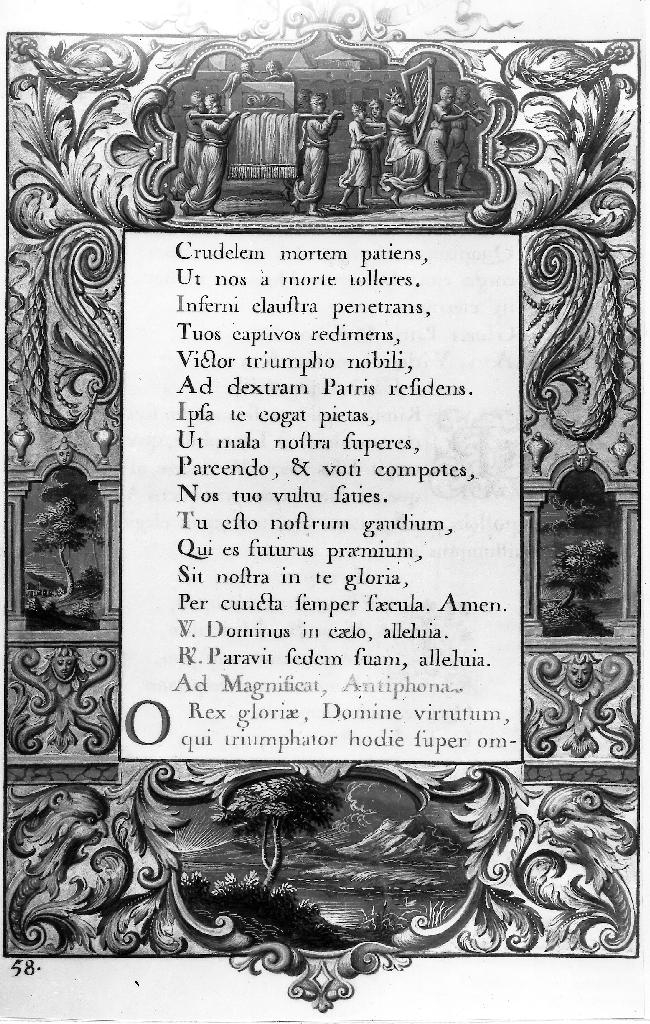 Crudelem mortem patiens,
Ut nos à morte tolleres.
Inferni clauſtra penetrans,
Tuos captivos redimens,
Victor triumpho nobili,
Ad dextram Patris reſidens.
Ipſa te cogat pietas,
Ut mala noſtra ſuperes,
Parcendo, & voti compotes,
Nos tuo vultu ſaties.
Tu eſto noſtrum gaudium,
Qui es futurus præmium,
Sit noſtra in te gloria,
Per cuncta ſemper ſæcula. Amen.
℣. Dominus in cælo, alleluia.
℟. Paravit ſedem ſuam, alleluia.
Ad Magnificat, Antiphona.
O Rex gloriæ, Domine virtutum,
qui triumphator hodie ſuper om-
58.